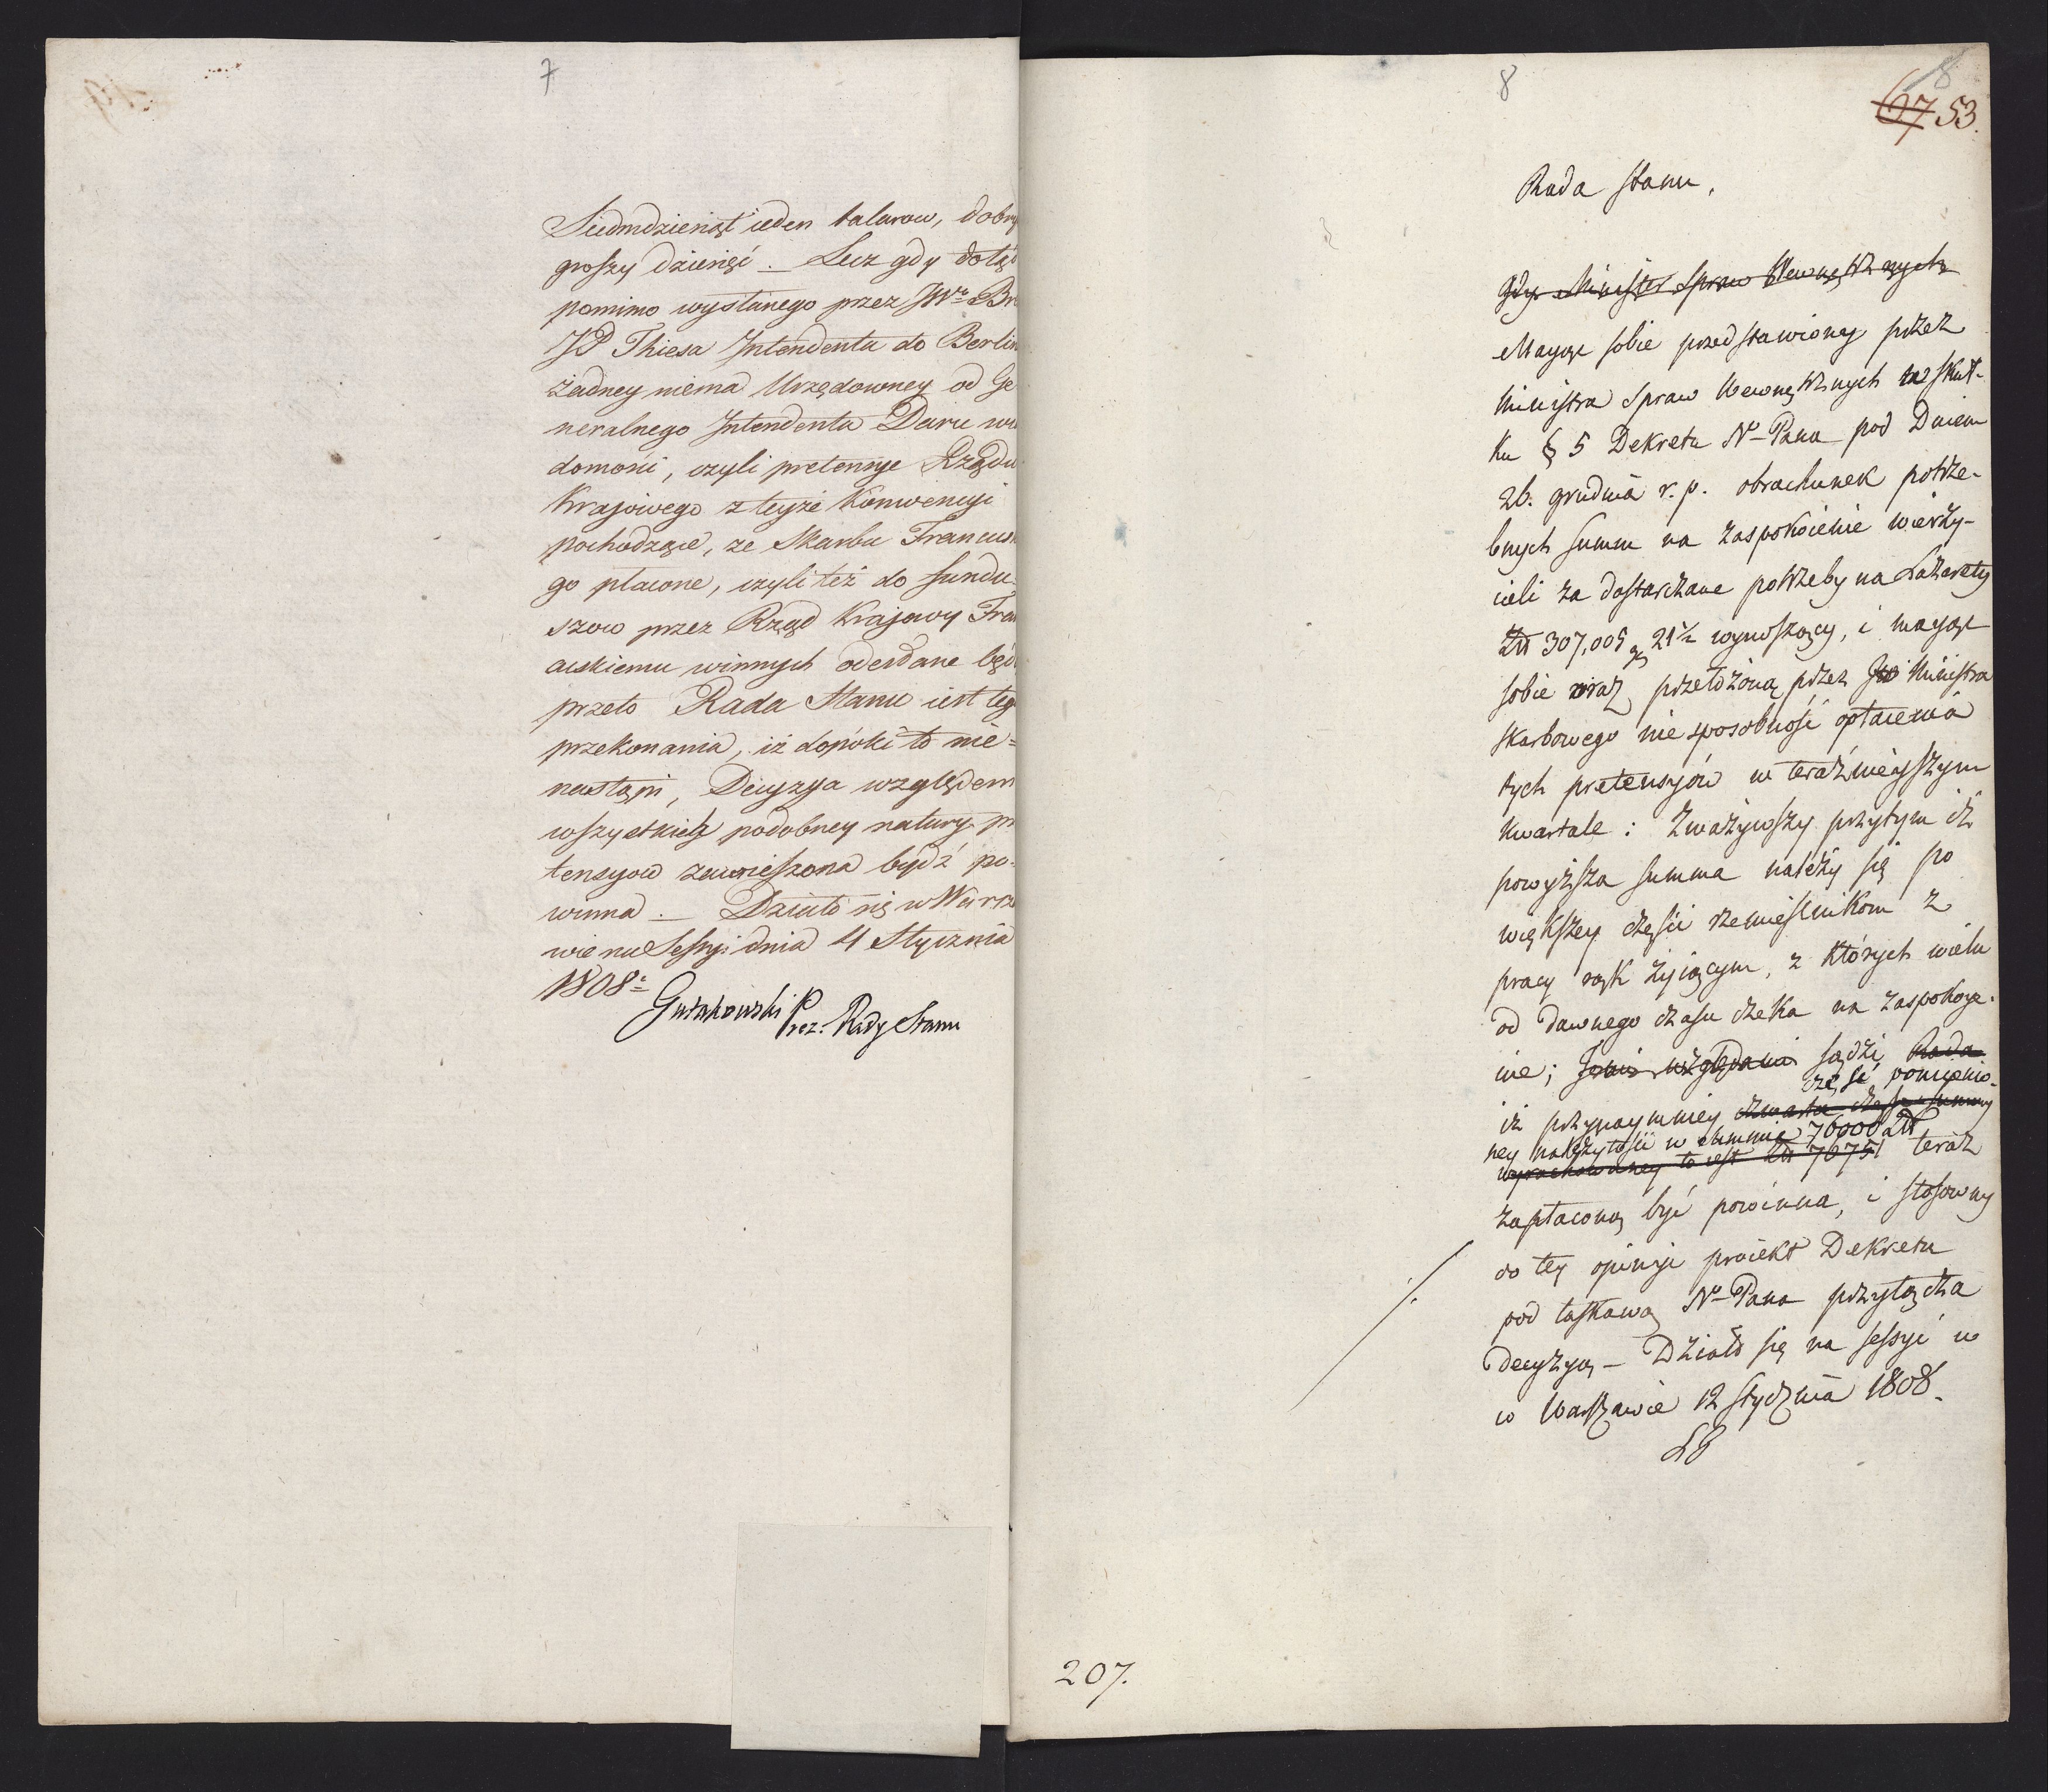 7
Siedmdziesiąt ieden talarow, dobry
groszy dziesięć. — Lecz gdy dotąd
pomimo wysłanego przez JWo Br
JP Thiesa Intendenta do Berlin
żadney niema Urzędowney od Ge
neralnego Intendenta Daru wia
domości, czyli pretensye Rządu
Krajowego z teyże Konwencyi
pochodzące, ze Skarbu Francusk
go płacone, czyli też do fundu
szow przez Rząd Krajowy Fran
cuskiemu winnych odesłane będ
przeto Rada Stanu iest teg
przekonania, iż dopóki to nie=
nastąpi, Decyzya względem
wszystkich podobney natury pr
tensyow zawieszona bydź po-
winna. — Działo się w Warsza
wie na Sessyi dnia 4 Stycznia
1808.
Gutakowski Prez. Rady Stanu
8
8
67 53.
Rada Stanu,
Gdy Minister Spraw Wewnętrznych
Maiąc sobie przedstawiony przez
Ministra Spraw Wewnętrznych w skut-
ku § 5 Dekretu No Pana pod Dniem
26. grudnia r. p. obrachunek potrze-
bnych summ na zaspokoienie wierzy-
cieli za dostarczane potrzeby na Lazarety
Zł 307,005 gr 21½ wynoszący, i maiąc
sobie oraz przełożoną przez JW Ministra
skarbowego niesposobność opłacenia
tych pretensyów w teraźnieyszym
kwartale: Zważywszy przytym iż
powyższa summa należy się po
większey części rzemieślnikom z
pracy rąk żyiącym, z których wielu
od dawnego czasu czeka na zaspokoie-
nie; Temi względami sądzi Rada
część pomienio-
iż przynaymniey czwarta część summy
ney należytości w summie 76000 Zł
wyrachowaney to iest Zł 76751 teraz
zapłaconą być powinna, i stosowny
do tey opinii proiekt Dekretu
pod łaskawą No Pana przyłącza
Decyzyą — Działo się na sessyi w
w Warszawie 12 stycznia 1808.
207.